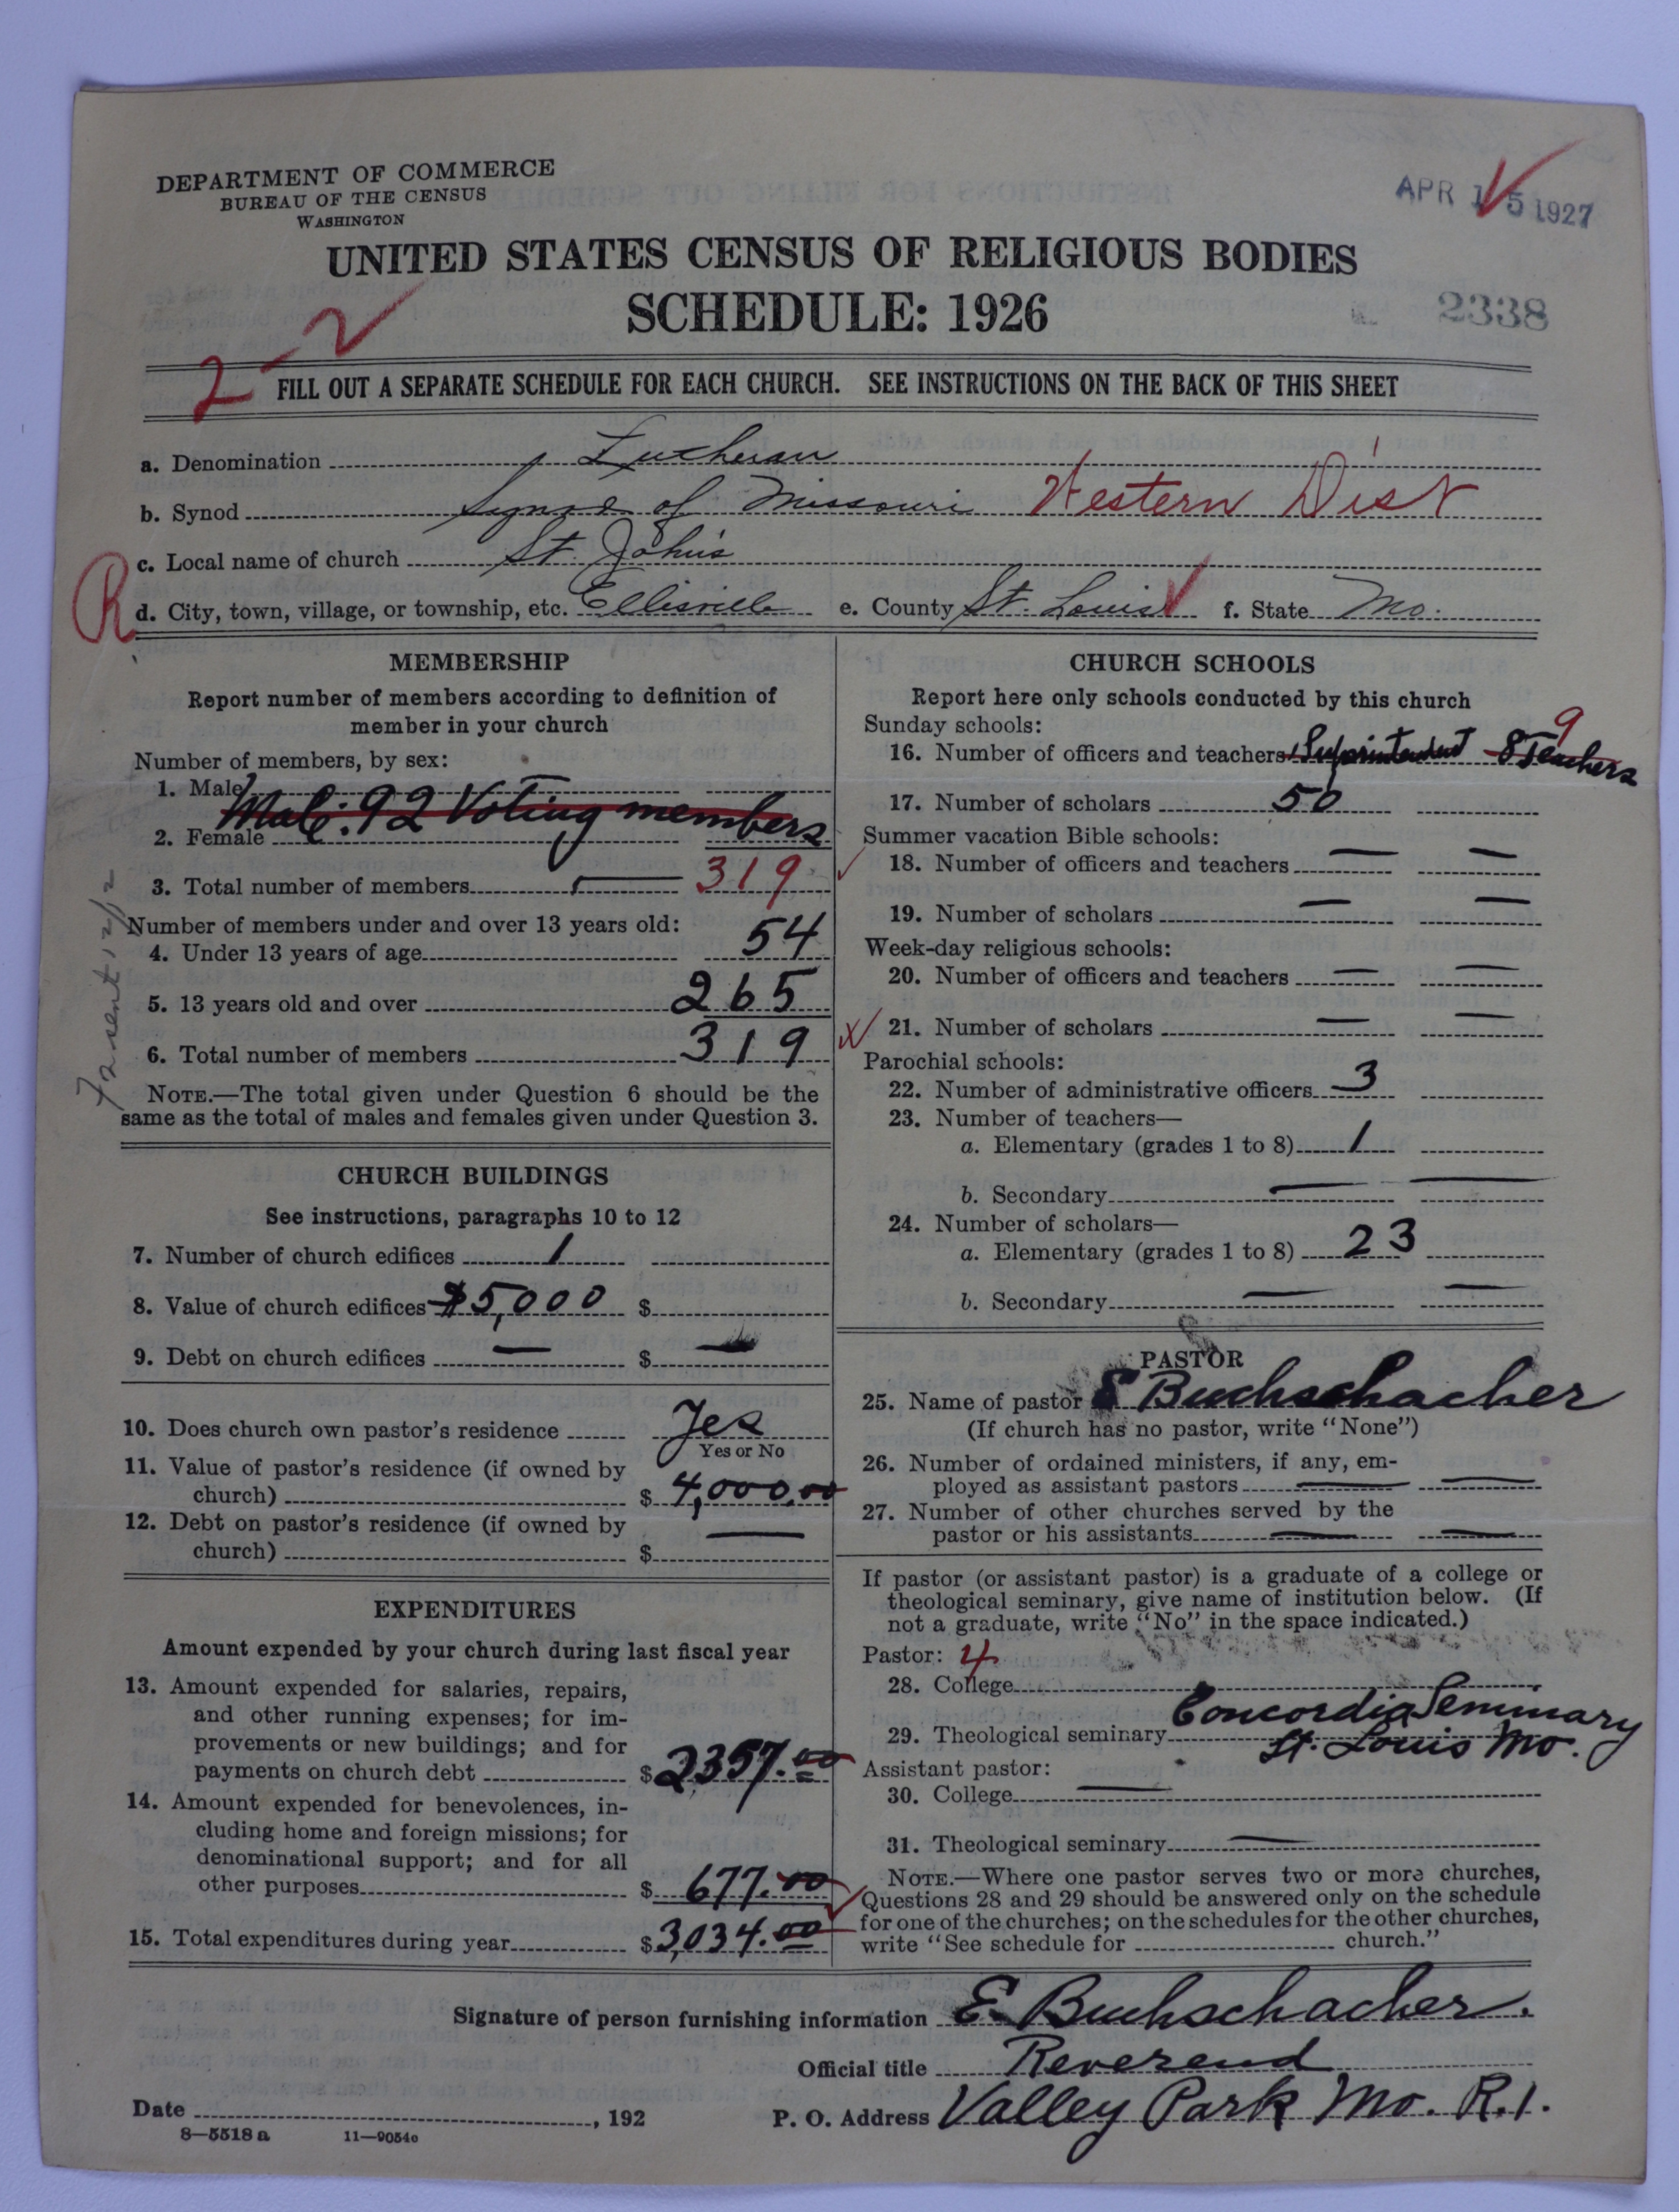 DEPARTMENT OF COMMERCE
BUREAU OF THE CENSUS
WASHINGTON
APR 15 1927
UNITED STATES CENSUS OF RELIGIOUS BODIES
SCHEDULE: 1926
2338
2-2
FILL OUT A SEPARATE SCHEDULE FOR EACH CHURCH. SEE INSTRUCTIONS ON THE BACK OF THIS SHEET
a. Denomination Lutheran
b. Synod Synod of Missouri Western Dist
c. Local name of church St. John's
R
d. City, town, village, or township, etc. Ellisville e. County St. Louis f. State Mo.
MEMBERSHIP
Report number of members according to definition of
member in your church
Number of members, by sex:
1. Male
Male: 92 Voting members
2. Female
3. Total number of members 319
Number of members under and over 13 years old:
4. Under 13 years of age 54
5. 13 years old and over 265
6. Total number of members 319
NOTE.—The total given under Question 6 should be the
same as the total of males and females given under Question 3.
CHURCH BUILDINGS
See instructions, paragraphs 10 to 12
7. Number of church edifices 1
8. Value of church edifices $5,000 $
9. Debt on church edifices — $ —
10. Does church own pastor's residence Yes
Yes or No
11. Value of pastor's residence (if owned by
church) $ 4,000.00
12. Debt on pastor's residence (if owned by
church) $ —
EXPENDITURES
Amount expended by your church during last fiscal year
13. Amount expended for salaries, repairs,
and other running expenses; for im-
provements or new buildings; and for
payments on church debt $2357.00
14. Amount expended for benevolences, in-
cluding home and foreign missions; for
denominational support; and for all
other purposes $ 677.00
15. Total expenditures during year $3,034.00
CHURCH SCHOOLS
Report here only schools conducted by this church
Sunday schools:
9
16. Number of officers and teachers 1 Suprintendent 8 Teachers
17. Number of scholars 50
Summer vacation Bible schools:
18. Number of officers and teachers — —
19. Number of scholars — —
Week-day religious schools:
20. Number of officers and teachers — —
21. Number of scholars — —
Parochial schools:
22. Number of administrative officers 3
23. Number of teachers—
a. Elementary (grades 1 to 8) 1
b. Secondary — —
24. Number of scholars—
a. Elementary (grades 1 to 8) 23
b. Secondary — —
PASTOR
25. Name of pastor E Buchschacher
(If church has no pastor, write "None")
26. Number of ordained ministers, if any, em-
ployed as assistant pastors — —
27. Number of other churches served by the
pastor or his assistants — —
If pastor (or assistant pastor) is a graduate of a college or
theological seminary, give name of institution below. (If
not a graduate, write "No" in the space indicated.)
Pastor: 4
28. College
29. Theological seminary Concordia Seminary
St. Louis Mo.
Assistant pastor:
30. College —
31. Theological seminary —
NOTE.—Where one pastor serves two or more churches,
Questions 28 and 29 should be answered only on the schedule
for one of the churches; on the schedules for the other churches,
write "See schedule for church."
Signature of person furnishing information E. Buchschacher.
Official title Reverend
Date , 192 P. O. Address Valley Park Mo. R.1.
8—5518 a 11—9054c